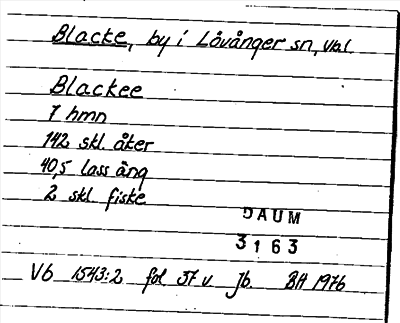 Blacke, by i Lövånger sn, vbl.
Blackee
7 hmn
142 skl. åker
40,5 lass äng
2 skl. fiske
DAUM
3163
Vb 1543:2 fol 37 v Jb. BH 1976